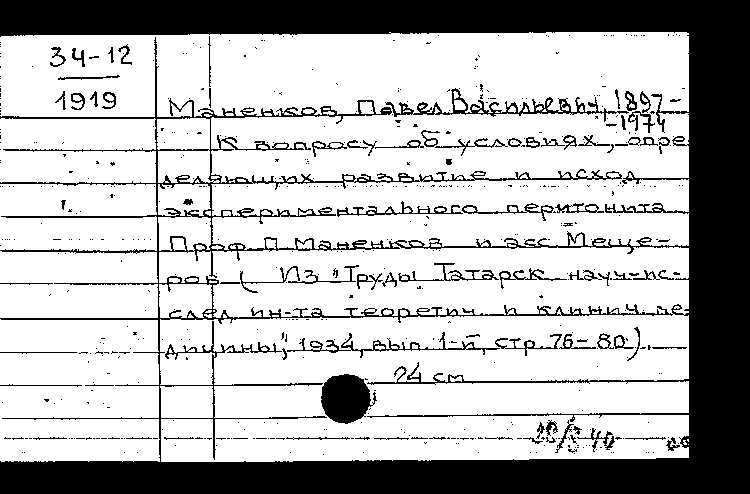 34-12
1919
Маненков, Павел Васильевич, 1897-
-1974
К вопросу об условиях, опре
деляющих развитие и исход
экспериментального перитонита
Проф П Маненков и асс Меще-
ров ( Из "Труды Татарск науч-ис-
след ин-та теоретич и клинич ме-
дицины", 1934, вып. 1-й, стр. 76-80).
24 см